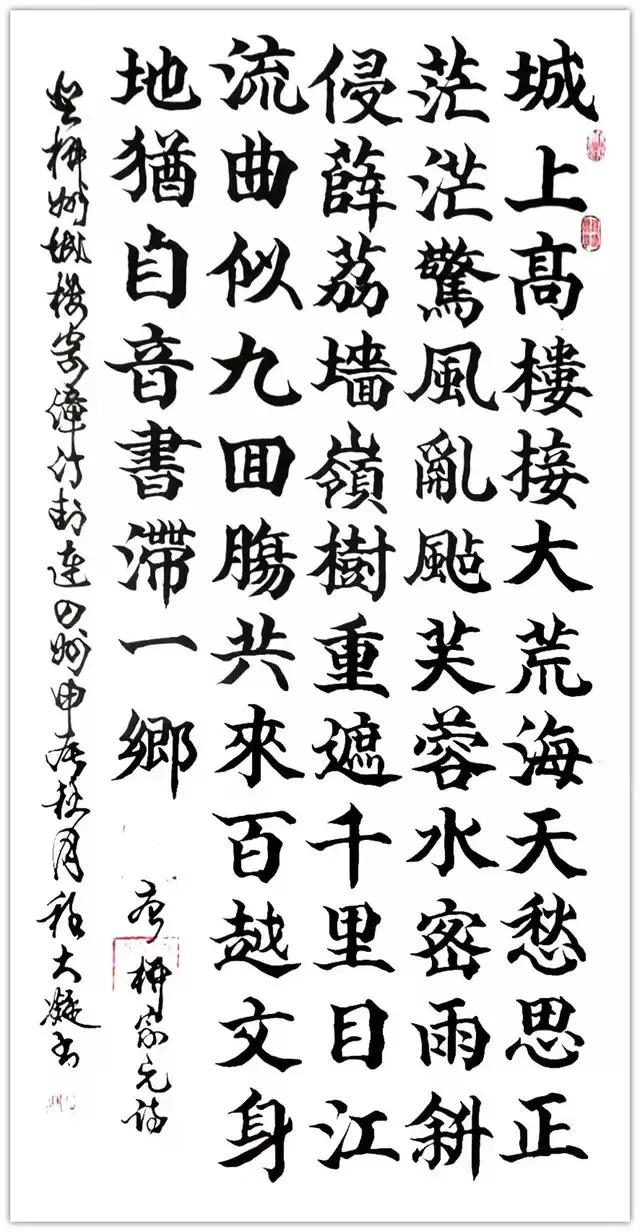 城上高樓接大荒海天愁思正
茫茫驚風亂颭芙蓉水密雨斜
侵薜荔墙嶺樹重遮千里目江
流曲似九囬膓共來百越文身
地猶自音書滯一鄉
唐柳宗元诗
登柳州城楼寄漳汀封連四州秋月程大凝书